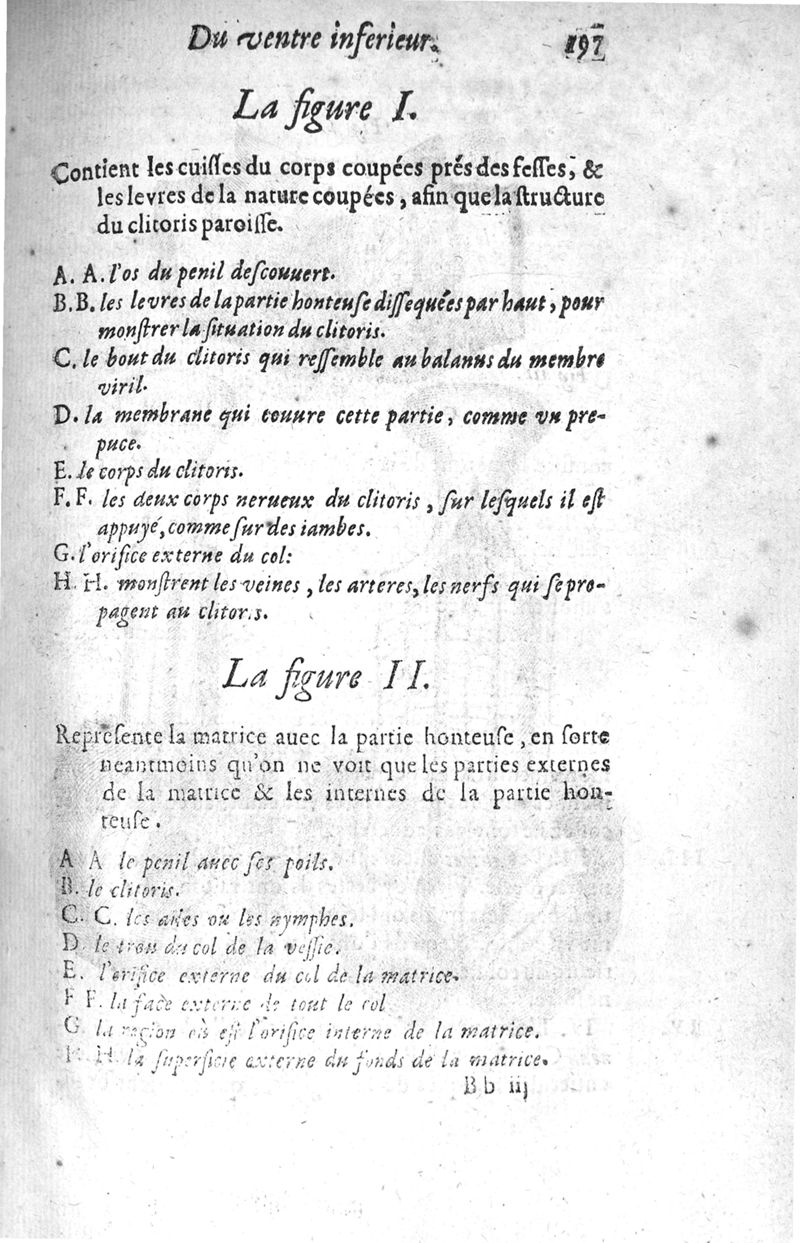 Du ventre inferieur. 197
La figure I.
Contient les cuisses du corps coupées prés des fesses, &
les levres de la nature coupées, afin que la structure
du clitoris paroisse.
A. A. l'os du penil descouuert.
B. B. les levres de la partie honteuse dissequées par haut, pour
monstrer la situation du clitoris.
C. le bout du clitoris qui ressemble au balanus du membre
viril.
D. la membrane qui couure cette partie, comme vn pre-
puce.
E. le corps du clitoris.
F. F. les deux corps nerueux du clitoris, sur lesquels il est
appuyé, comme sur des iambes.
G. l'orifice externe du col:
H. H. monstrent les veines, les arteres, les nerfs qui se pro-
pagent au clitoris.
La figure II.
Represente la matrice auec la partie honteuse, en sorte
neantmoins qu'on ne voit que les parties externes
de la matrice & les internes de la partie hon-
teuse.
A A le penil auec ses poils.
B. le clitoris.
C. C. les ailes ou les nymphes.
D. le trou du col de la vessie.
E. l'orifice externe du col de la matrice.
F F. la face externe de tout le col
G. la region où est l'orifice interne de la matrice.
H. H. la superficie externe du fonds de la matrice.
B b iij